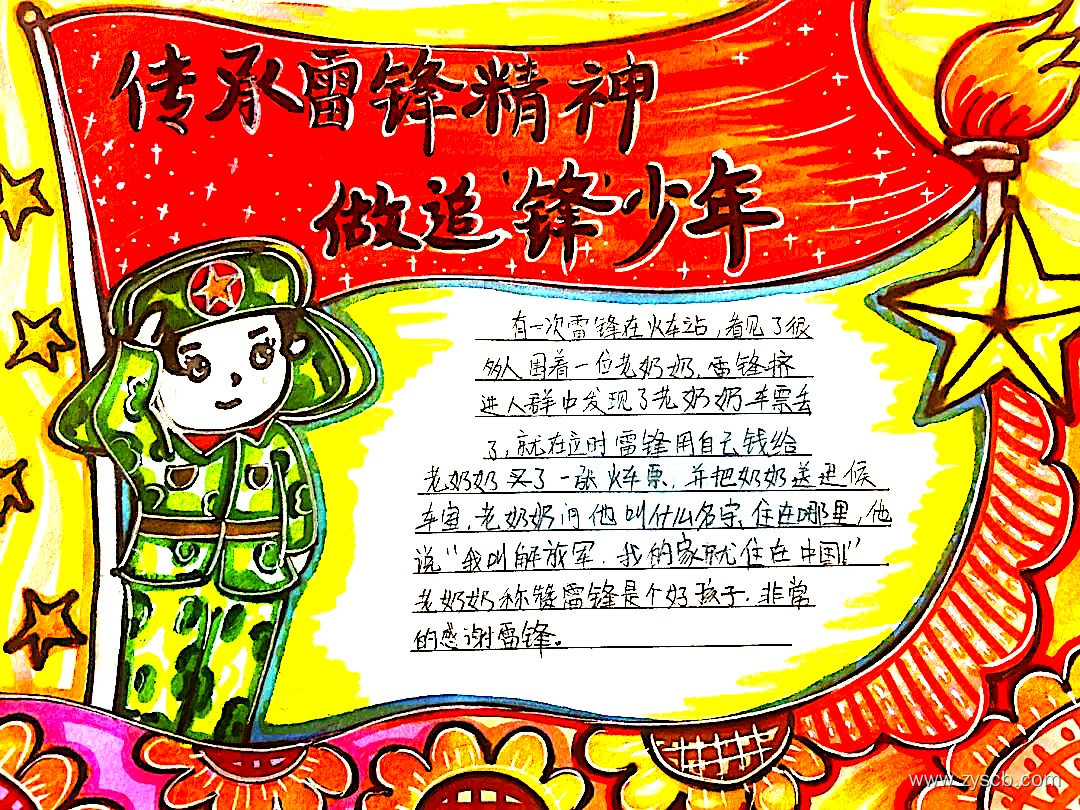 传承雷锋精神
做追'锋'少年
有一次雷锋在火车站，看见了很
多人围着一位老奶奶，雷锋挤
进人群中发现了老奶奶车票丢
了，就在这时雷锋用自己钱给
老奶奶买了一张火车票，并把奶奶送进候
车室，老奶奶问他叫什么名字，住在哪里，他
说"我叫解放军，我的家就住在中国！"
老奶奶称赞雷锋是个好孩子，非常
的感谢雷锋。
www.zyscb.com